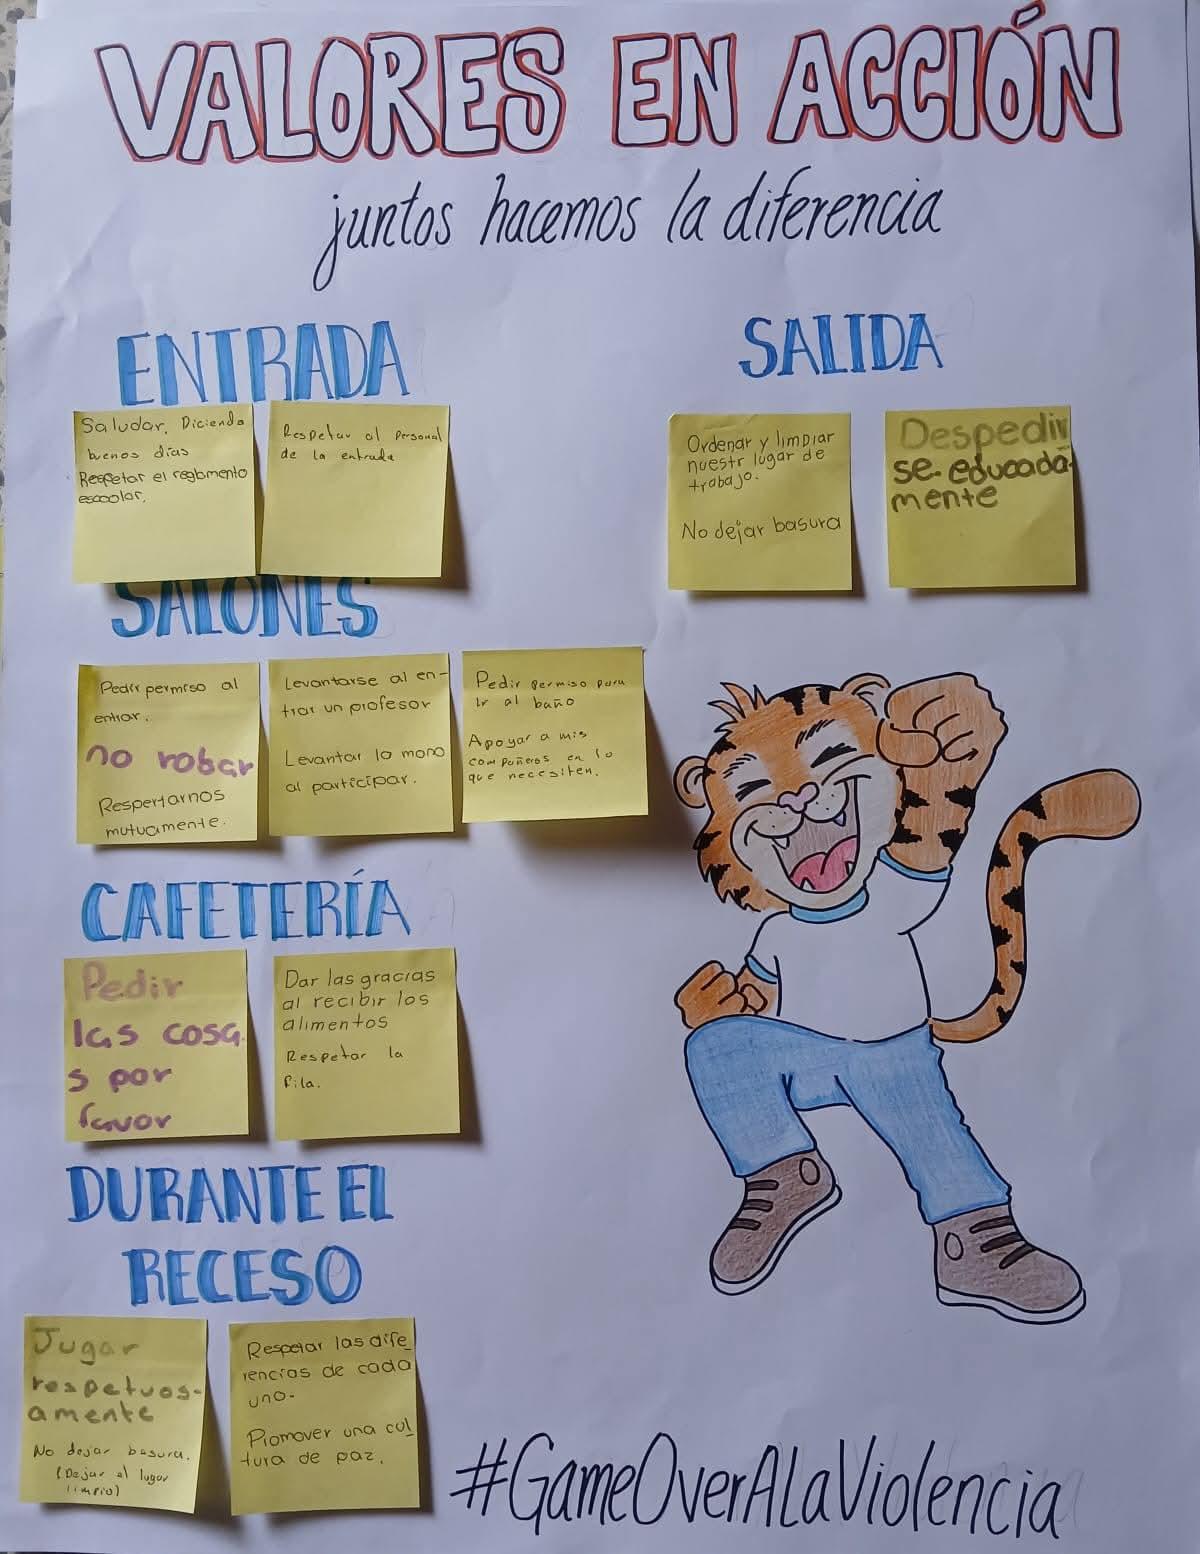 VALORES EN ACCIÓN
juntos hacemos la diferencia
ENTRADA
Saludar. Diciendo
buenos días
Respetar el reglamento
escoolar.
Respetar al personal
de la entrada
SALONES
Pedir permiso al
entrar.
no robar
Respertarnos
mutuamente.
Levantarse al en-
trar un profesor
Levantar la mano
al participar.
Pedir permiso para
ir al baño
Apoyar a mis
compañeros en lo
que necesiten.
CAFETERÍA
Pedir
las cosa
s por
favor
Dar las gracias
al recibir los
alimentos
Respetar la
fila.
DURANTE EL
RECESO
Jugar
respetuos-
amente
No dejar basura.
(Dejar el lugar
limpio)
Respetar las dife_
rencias de cada
uno.
Promover una cul_
tura de paz.
SALIDA
Ordenar y limpiar
nuestr lugar de
trabajo.
No dejar basura
Despedir
se educada-
mente
#GameOverALaViolencia